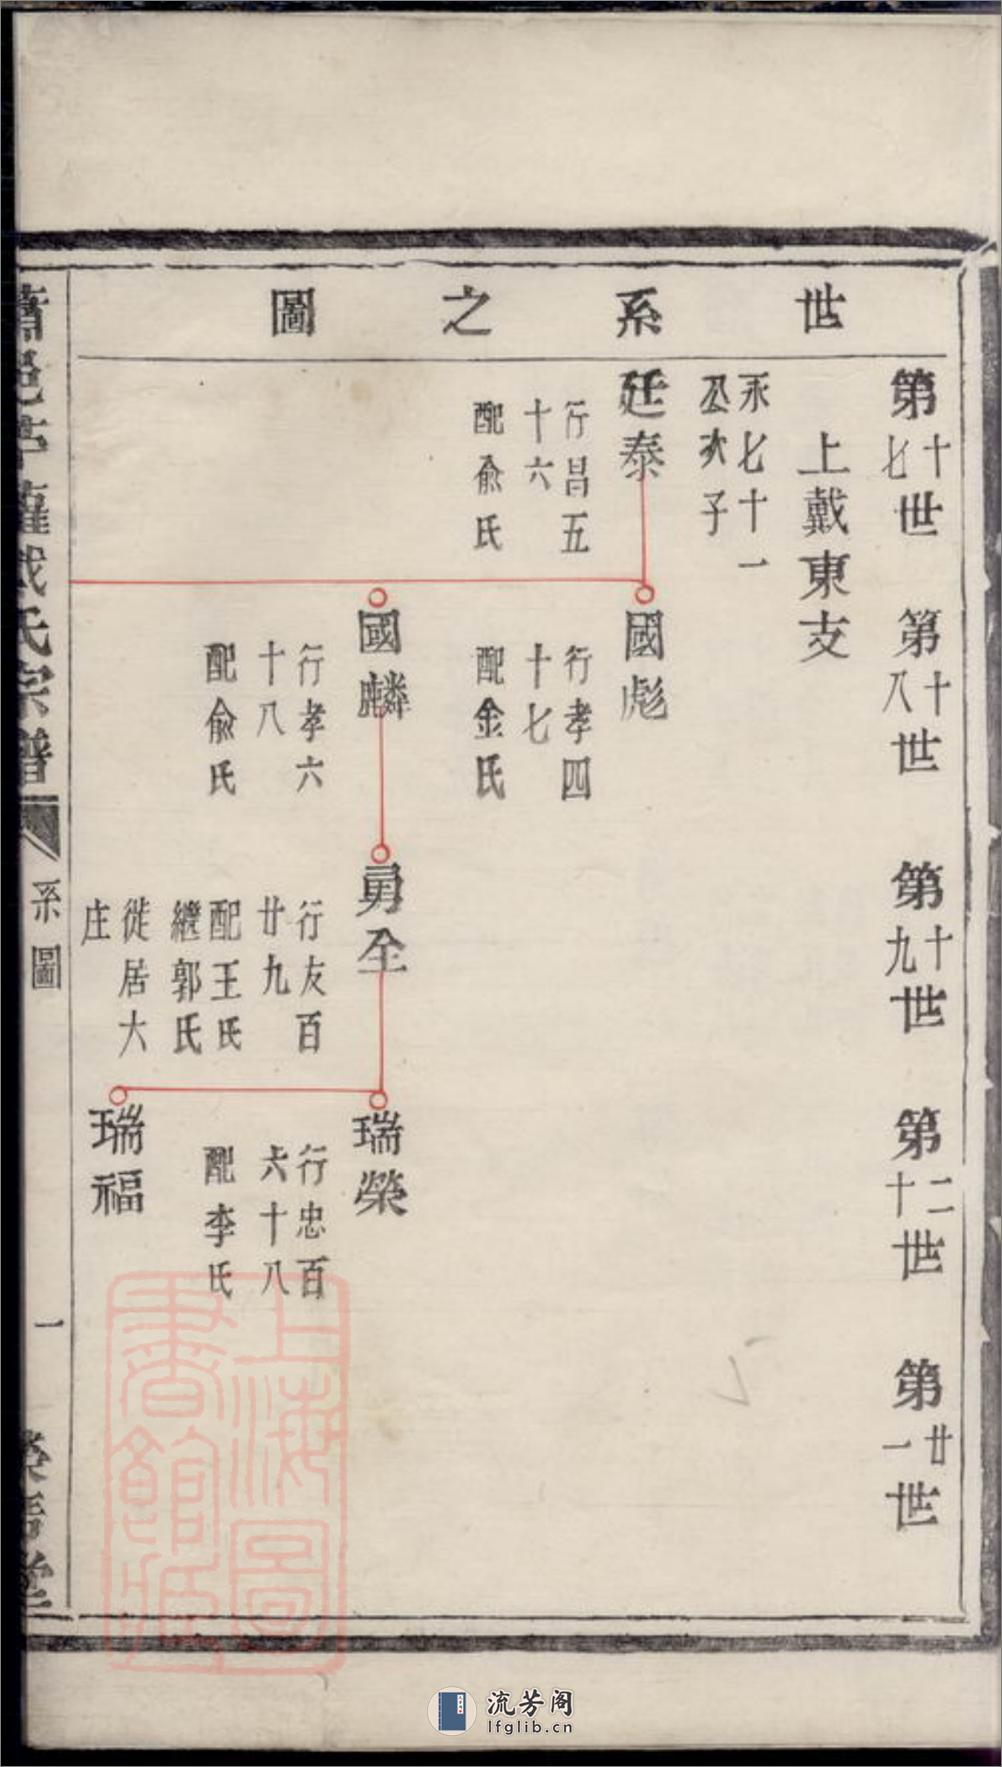 世系之圖
第十七世
第十八世
第十九世
第二十世
第廿一世
上戴東支
永七十一
公次子
廷泰
行昌五
十六
配俞氏
國彪
行孝四
十七
配金氏
國麟
行孝六
十八
配俞氏
勇全
行友百
廿九
配王氏
繼郭氏
徙居大
庄
瑞榮
行忠百
六十八
配李氏
瑞福
戴氏宗譜
系圖
一
上海圖
書館藏
流芳阁
lfglib.cn